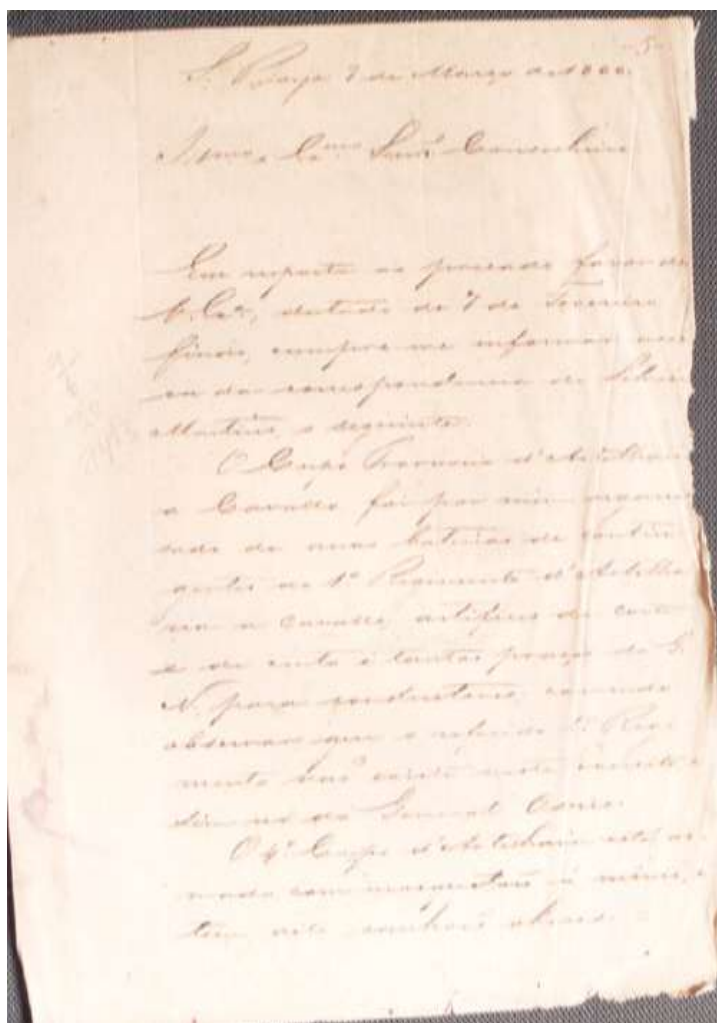 -5-
S. 7 de Março de 1866.
Illmo. e Exmo. Senr. Conselheiro
Em resposta ao presado favor de
V. Exa., datado de 7 de Fevereiro
findo, cumpre-me informar acer
ca da correspondencia de
Martins, o seguinte:
O Corpo Provisorio d'Artilharia
a Cavallo foi por mim organi
sado de contin
gentes do 1º Regimento d'Artilha
ria a Cavallo, artifices da corte
e de cento e tantas praças da G.
N. para conductores; convindo
observar que o referido 1º Regi
mento não existe neste exercito e
sim no do General Osorio.
O 4º Corpo d'Artilharia está ar
mado com mosquetões á minié, e
tem oito canhões obuses.